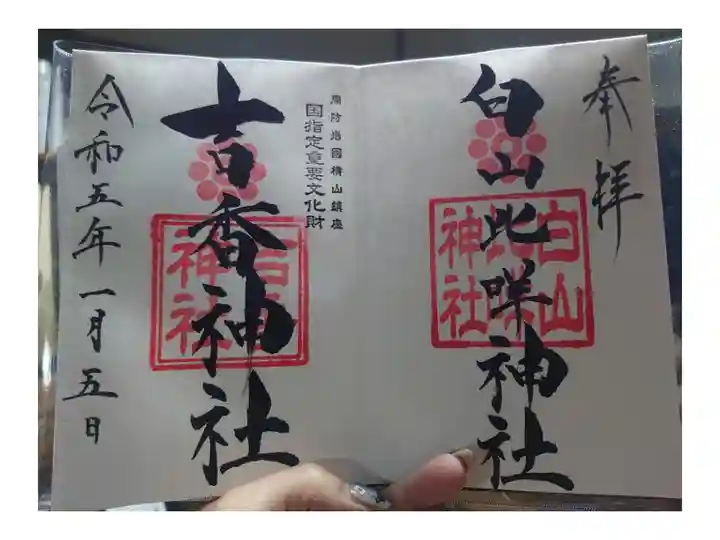 奉拝
白山比咩神社
白山比咩神社
周防岩国横山鎮座
国指定重要文化財
吉香神社
吉香神社
令和五年一月五日